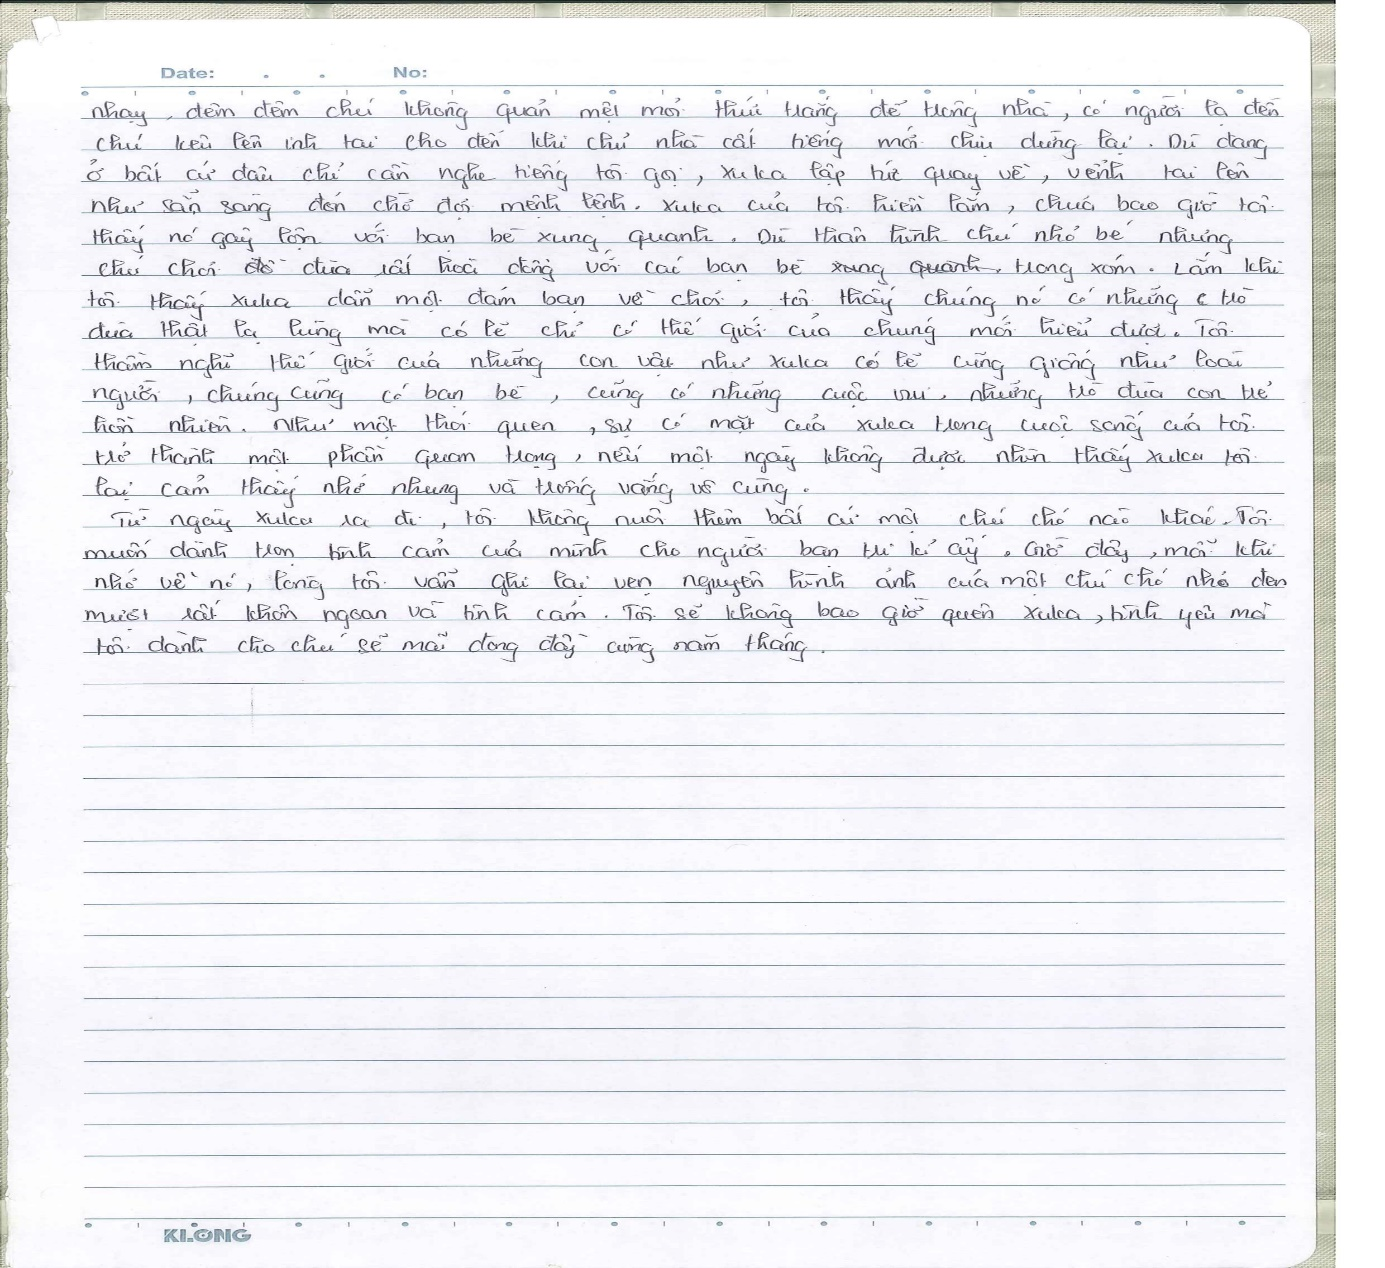 Date: . . No:
nhạy, đêm đêm chú không quản mệt mỏi thức trắng để trông nhà, có người lạ đến
chú kêu lên inh tai cho đến khi chủ nhà cất tiếng mới chịu dừng lại. Dù đang
ở bất cứ đâu chỉ cần nghe tiếng tôi gọi, xulca lập tức quay về, vểnh tai lên
như sẵn sàng đón chờ đợi mệnh lệnh. Xulca của tôi hiền lắm, chưa bao giờ tôi
thấy nó gây lộn với bạn bè xung quanh. Dù thân hình chú nhỏ bé nhưng
chú chơi đùa rất hoà đồng với các bạn bè trong xóm. Lắm khi
tôi thấy xulca dẫn một đám bạn về chơi, tôi thấy chúng nó có những trò
đùa thật lạ lùng mà có lẽ chỉ có thế giới của chúng mới hiểu được. Tôi
thầm nghĩ thế giới của những con vật như xulca có lẽ cũng giống như loài
người, chúng cũng có bạn bè, cũng có những cuộc vui, những trò đùa con trẻ
hồn nhiên. Như một thói quen, sự có mặt của xulca trong cuộc sống của tôi
trở thành một phần quan trọng, nếu một ngày không được nhìn thấy xulca tôi
lại cảm thấy nhớ nhung và trống vắng vô cùng.
Từ ngày xulca ra đi, tôi không nuôi thêm bất cứ một chú chó nào khác. Tôi
muốn dành trọn tình cảm của mình cho người bạn tri kỉ ấy. Giờ đây, mỗi khi
nhớ về nó, lòng tôi vẫn ghi lại vẹn nguyên hình ảnh của một chú chó nhỏ đen
mượt rất khôn ngoan và tình cảm. Tôi sẽ không bao giờ quên xulca, tình yêu mà
tôi dành cho chú sẽ mãi đong đầy cùng năm tháng.
KLONG